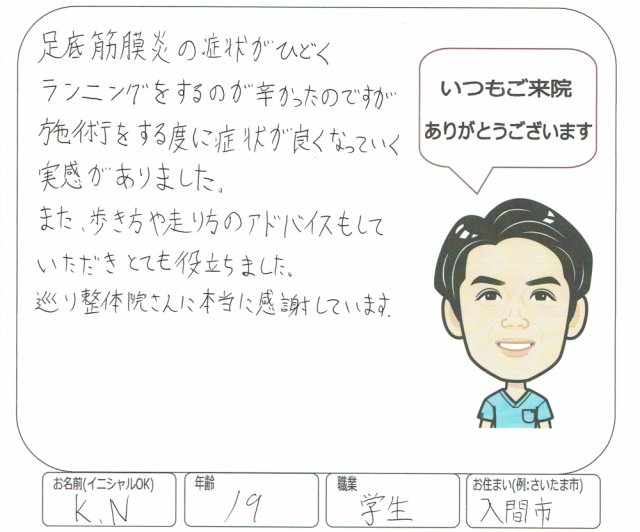 足底筋膜炎の症状がひどく
ランニングをするのが辛かったのですが
施術をする度に症状が良くなっていく
実感がありました。
また、歩き方や走り方のアドバイスもして
いただきとても役立ちました。
巡り整体院さんに本当に感謝しています。
いつもご来院
ありがとうございます
お名前(イニシャルOK)
K.N
年齢
19
職業
学生
お住まい(例:さいたま市)
入間市